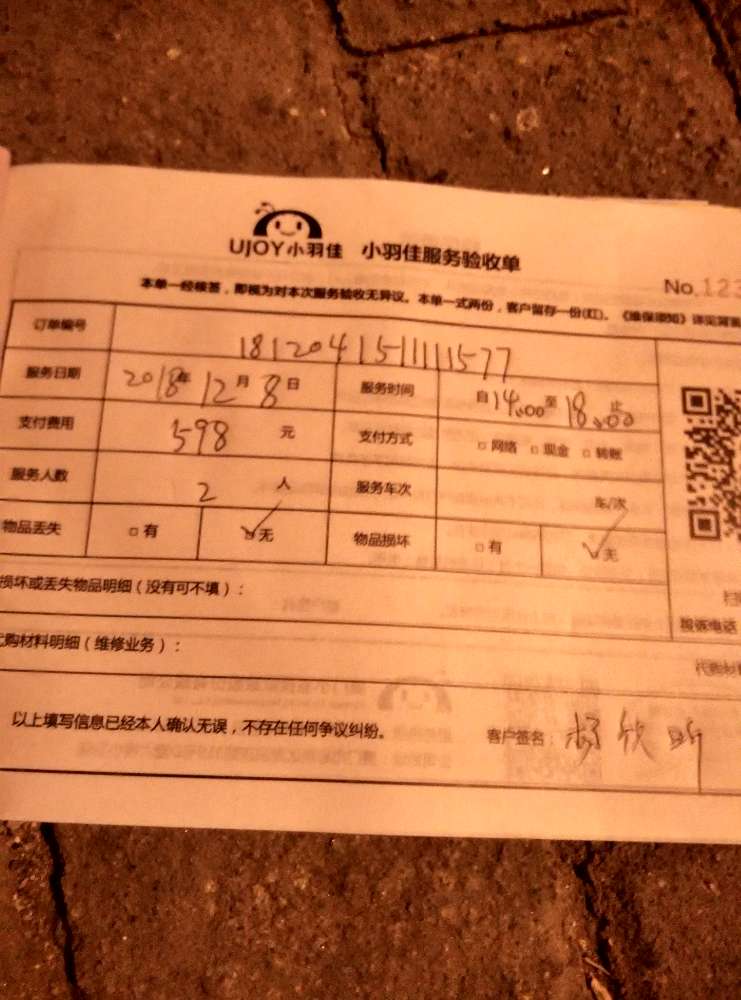 UJOY小羽佳 小羽佳服务验收单
No.123
本单一经核签，即视为对本次服务验收无异议。本单一式两份，客户留存一份(红)。《维保须知》详见背面
订单编号 181204151111577
服务日期 2018年12月8日 服务时间 自14:00至18:00止
支付费用 598 元 支付方式 □网络 □现金 □转账
服务人数 2 人 服务车次 车/次
物品丢失 □有 ☑无 物品损坏 □有 ☑无
损坏或丢失物品明细（没有可不填）：
代购材料明细（维修业务）：
以上填写信息已经本人确认无误，不存在任何争议纠纷。 客户签名：杨欣昕